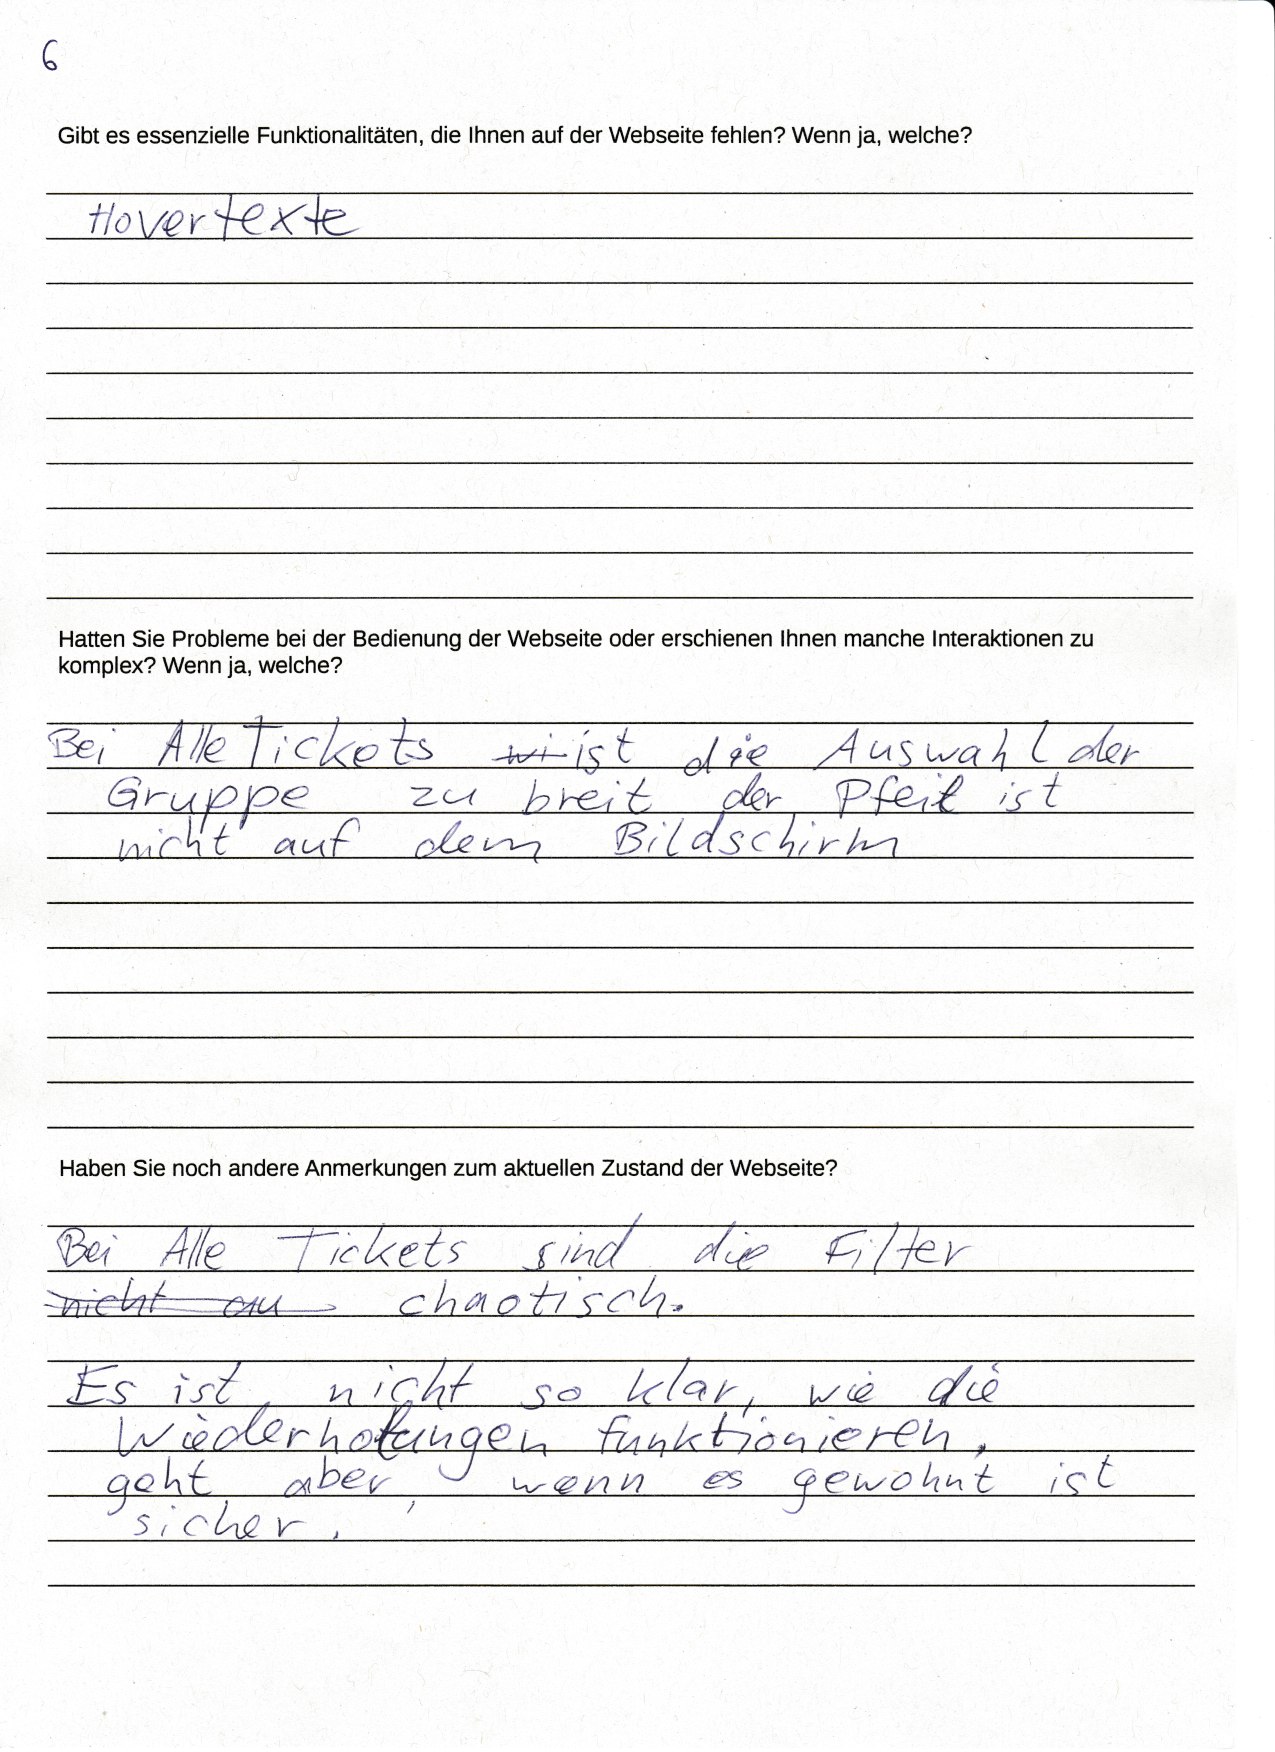 6
Gibt es essenzielle Funktionalitäten, die Ihnen auf der Webseite fehlen? Wenn ja, welche?
Hovertexte
Hatten Sie Probleme bei der Bedienung der Webseite oder erschienen Ihnen manche Interaktionen zu
komplex? Wenn ja, welche?
Bei Alle Tickets wi ist die Auswahl der
Gruppe zu breit der Pfeil ist
nicht auf dem Bildschirm
Haben Sie noch andere Anmerkungen zum aktuellen Zustand der Webseite?
Bei Alle Tickets sind die Filter
nicht au chaotisch.
Es ist nicht so klar, wie die
Wiederholungen funktionieren,
geht aber, wenn es gewohnt ist
sicher.